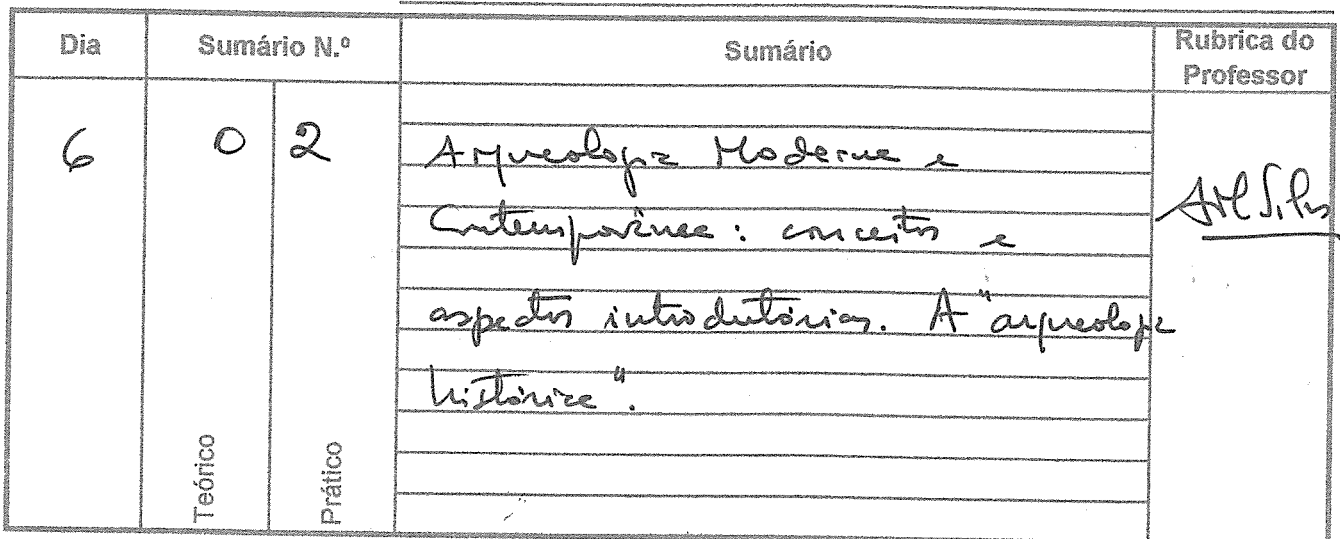 Dia Sumário N.º Sumário Rubrica do Professor
6 0 2 Arqueologia Moderna e
Contemporânea: conceitos e
aspectos introdutórios. A "arqueologia
histórica".
Teórico Prático